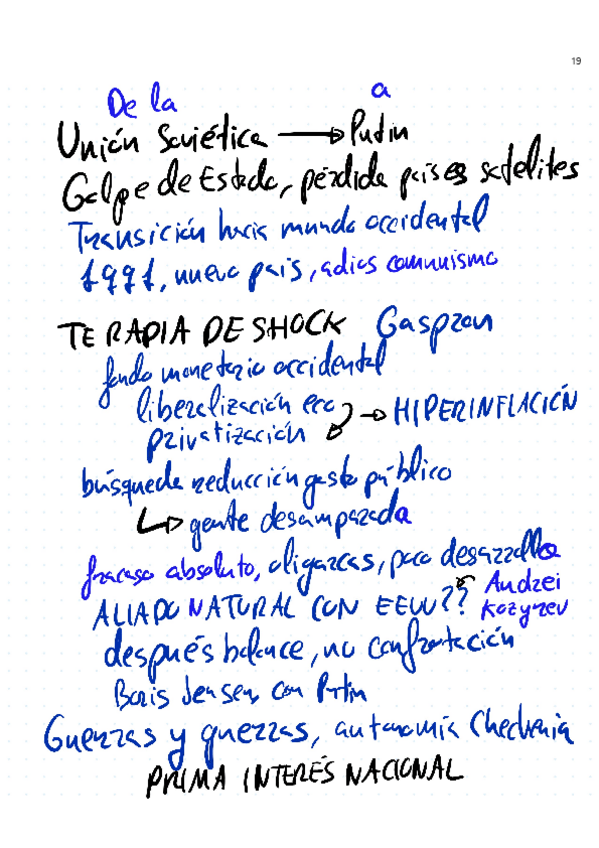 19
De la a
Unión Soviética → Putin
Golpe de Estado, pérdida países satelites
Transición hacia mundo occidental
1991, nuevo país, adios comunismo
TERAPIA DE SHOCK Gaspron
fondo monetario occidental
liberalización eco → HIPERINFLACIÓN
privatización
búsqueda reducción gasto público
↳ gente desamparada
fracaso absoluto, oligarcas, poco desarrollo
ALIADO NATURAL CON EEUU?? Andrei
Kozyrev
después balance, no confrontación
Boris Jensen con Putin
Guerras y guerras, autonomía Chechenia
PRIMA INTERÉS NACIONAL